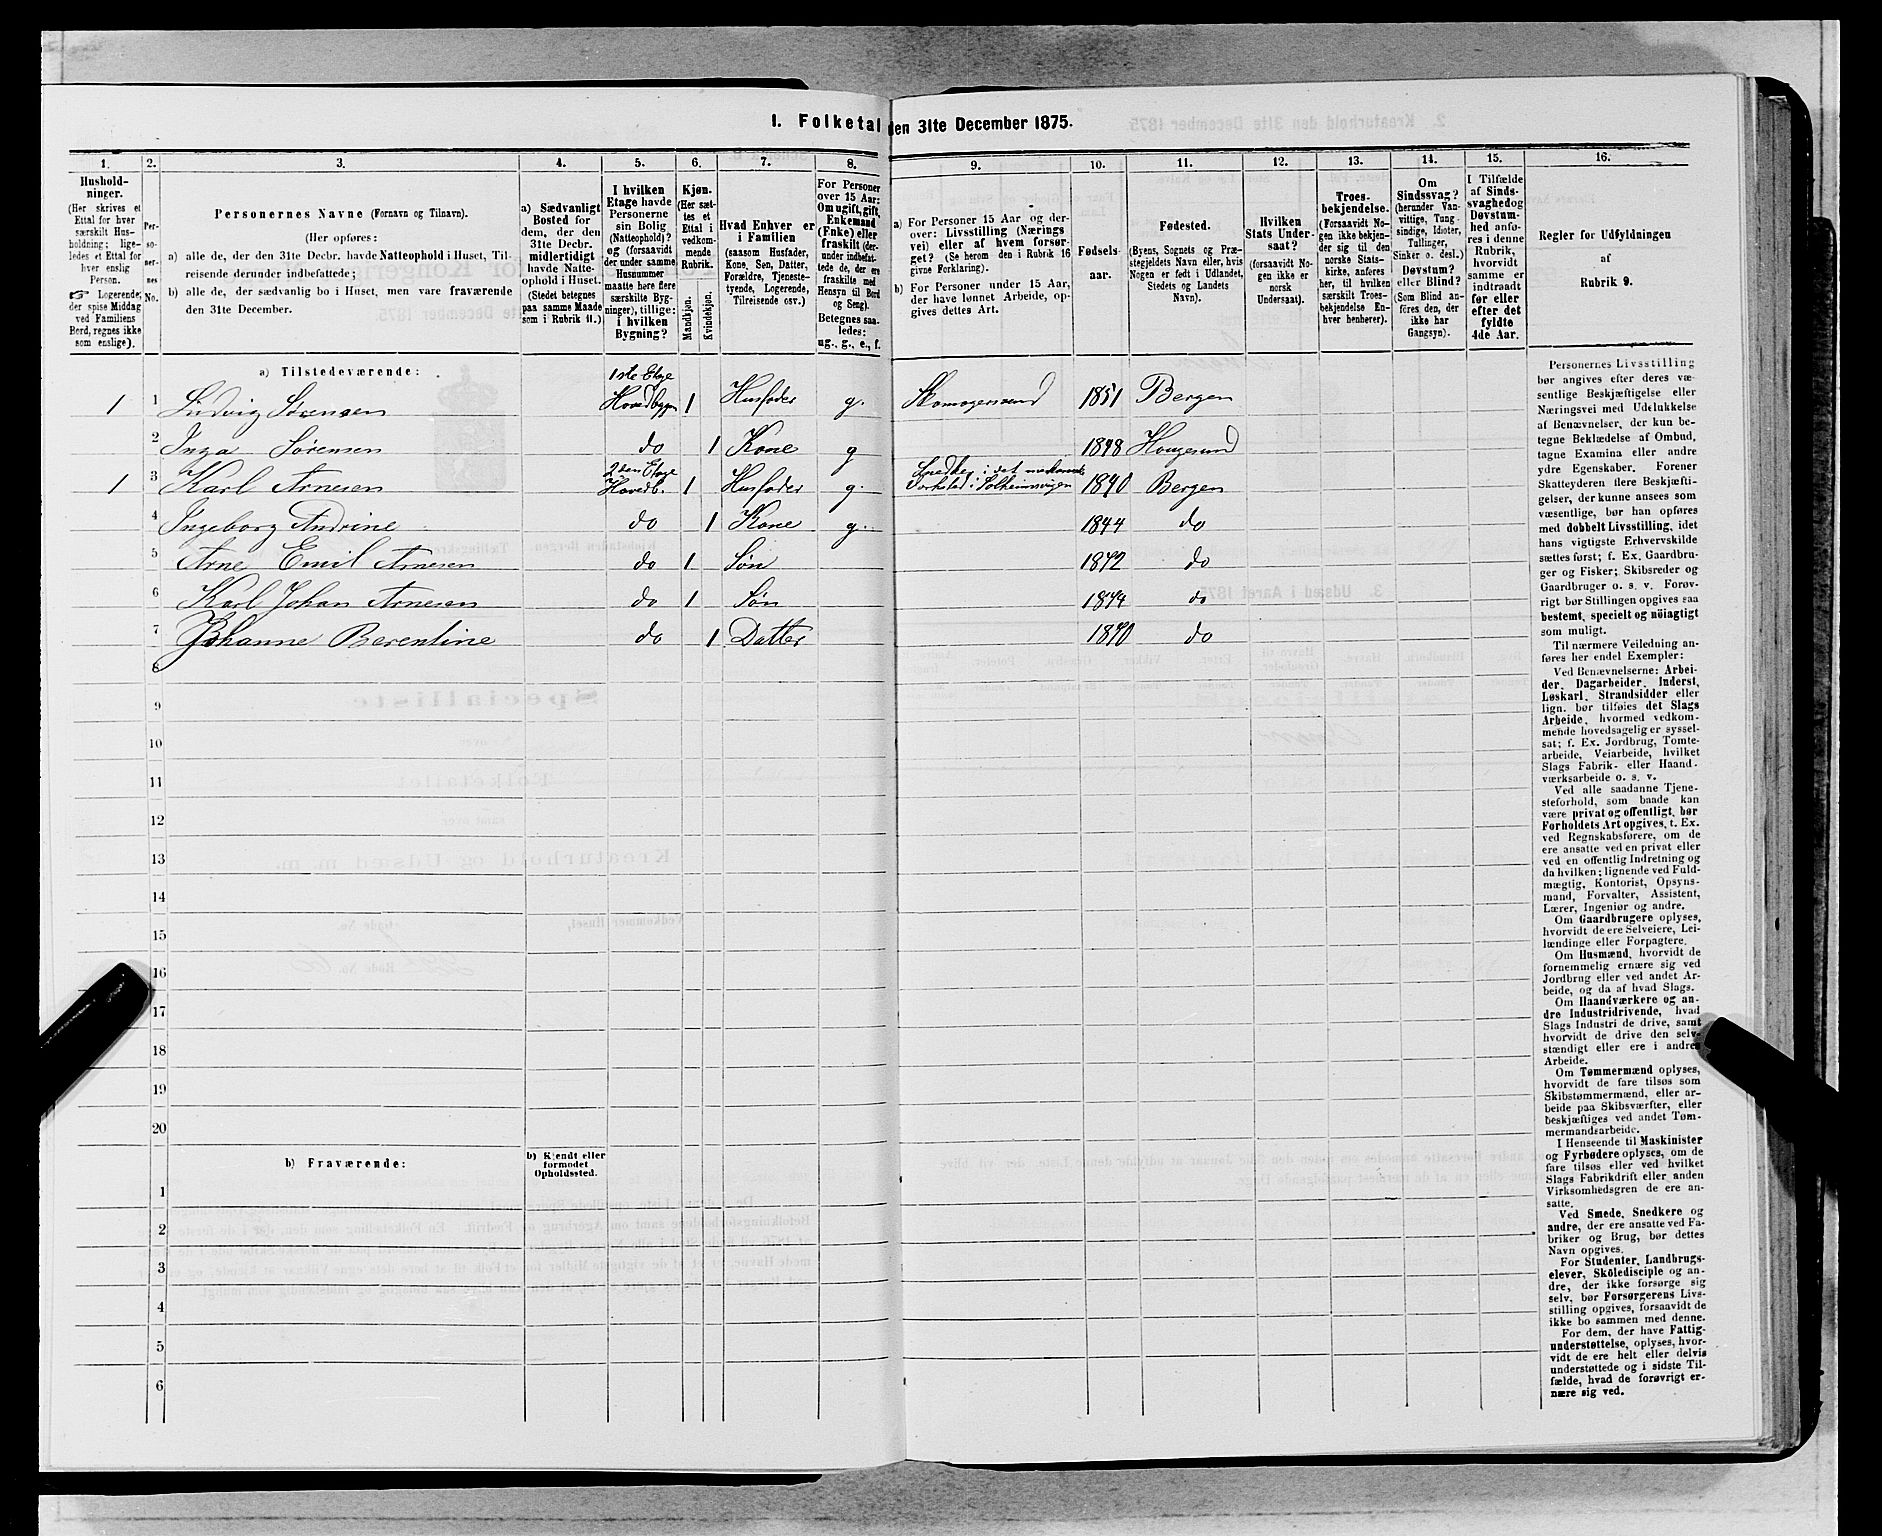 1. Folketal den 31te December 1875.
1. 2. 3. 4. 5. 6. 7. 8. 9. 10. 11. 12. 13. 14. 15. 16.
Hushold-
ninger.
(Her skrives et
Ettal for hver
særskilt Hus-
holdning; lige-
ledes et Ettal for
hver enslig
Person.
☞ Logerende,
der spise Middag
ved Familiens
Bord, regnes ikke
som enslige).
Per-
so-
ner-
nes
No.
Personernes Navne (Fornavn og Tilnavn).
(Her opføres:
a) alle de, der den 31te Decbr. havde Natteophold i Huset, Til-
reisende derunder indbefattede;
b) alle de, der sædvanlig bo i Huset, men vare fraværende
den 31te December.
a) Sædvanligt
Bosted for
dem, der den
31te Decbr.
midlertidigt
havde Natte-
ophold i Huset.
(Stedet betegnes
paa samme Maade
som i Rubrik 11.)
I hvilken
Etage havde
Personerne
sin Bolig
(Natteophold)?
og (forsaavidt
der under samme
Husnummer
maatte høre flere
særskilte Byg-
ninger), tillige:
i hvilken
Bygning?
Kjøn.
(Her sæt-
tes et
Ettal i
vedkom-
mende
Rubrik.
Mandkjøn.
Kvindekjøn.
Hvad Enhver er
i Familien
(saasom Husfader,
Kone, Søn, Datter,
Forældre, Tjeneste-
tyende, Logerende,
Tilreisende osv.)
For Personer
over 15 Aar:
Om ugift, gift,
Enkemand
(Enke) eller
fraskilt (der-
under indbefat-
tede de, der ere
fraskilte med
Hensyn til Bord
og Seng).
Betegnes saa-
ledes:
ug., g., e., f.
a) For Personer 15 Aar og der-
over: Livsstilling (Nærings
vei) eller af hvem forsør-
get? (Se herom den i Rubrik 16
givne Forklaring).
b) For Personer under 15 Aar,
der have lønnet Arbeide, op-
gives dettes Art.
Fødsels-
aar.
Fødested.
(Byens, Sognets og Præ-
stegjeldets Navn eller, hvis
Nogen er født i Udlandet,
Stedets og Landets
Navn).
Hvilken
Stats Under-
saat?
(forsaavidt No-
gen ikke er
norsk
Undersaat).
Troes-
bekjendelse.
(Forsaavidt No-
gen ikke bekjen-
der sig til den
norske Stats-
kirke, anføres
her, til hvilken
særskilt Troes-
bekjendelse En-
hver henhører).
Om
Sindssvag?
(herunder Van-
vittige, Tung-
sindige, Idioter,
Tullinger,
Sinker o. desl.)
Døvstum?
eller Blind?
(Som Blind an-
føres den, der
ikke har
Gangsyn).
I Tilfælde
af Sinds-
svaghed og
Døvstum-
hed anfø-
res i denne
Rubrik,
hvorvidt
samme er
indtraadt
før eller
efter det
fyldte
4de Aar.
Regler for Udfyldningen
af
Rubrik 9.
a) Tilstedeværende:
1 1 Ludvig Sørensen 1ste Etage Hovedbygn 1 Husfader g. Skomagersvend 1851 Bergen
2 Inga Sørensen do 1 Kone g 1848 Hougesund
1 3 Karl Arnesen 2den Etage Hovedb. 1 Husfader g. Snedker i det mekaniske Værksted i Solheimsvigen 1840 Bergen
4 Ingeborg Andrine do 1 Kone g. 1844 do
5 Arne Emil Arnesen do 1 Søn 1872 do
6 Karl Johan Arnesen do 1 Søn 1874 do
7 Johanne Berentine do 1 Datter 1870 do
8
9
10
11
12
13
14
15
16
17
18
19
20
b) Fraværende:
b) Kjendt eller
formodet
Opholdssted.
1
2
3
4
5
6
Personernes Livsstilling
bør angives efter deres væ-
sentlige Beskjæftigelse eller
Næringsvei med Udelukkelse
af Benævnelser, der kun be-
tegne Beklædelse af Ombud,
tagne Examina eller andre
ydre Egenskaber. Forener
Skatteyderen flere Beskjæfti-
gelser, der kunne ansees som
væsentlige, bør han opføres
med dobbelt Livsstilling, idet
hans vigtigste Erhvervskilde
sættes først; f. Ex. Gaardbru-
ger og Fisker; Skibsreder og
Gaardbruger o. s. v. Forøv-
rigt bør Stillingen opgives saa
bestemt, specielt og nöiagtigt
som muligt.
Til nærmere Veiledning an-
føres her endel Exempler:
Ved Benævnelserne: Arbei-
der, Dagarbeider, Inderst,
Løskarl, Strandsidder eller
lign. bør tilføies det Slags
Arbeide, hvormed vedkom-
mende hovedsagelig er syssel-
sat; f. Ex. Jordbrug, Tomte-
arbeide, Veiarbeide, hvilket
Slags Fabrik- eller Haand-
værksarbeide o. s. v.
Ved alle saadanne Tjene-
steforhold, som baade kan
være privat og offentligt, bør
Forholdets Art opgives, t. Ex.
ved Regnskabsførere, om de
ere ansatte ved en privat eller
ved en offentlig Indretning og
da hvilken; lignende ved Fuld-
mægtig, Kontorist, Opsyns-
mand, Forvalter, Assistent,
Lærer, Ingeniør og andre.
Om Gaardbrugere oplyses,
hvorvidt de ere Selveiere, Lei-
lændinge eller Forpagtere.
Om Husmænd, hvorvidt de
fornemmelig ernære sig ved
Jordbrug eller ved andet Ar-
beide, og da af hvad Slags.
Om Haandværkere og an-
dre Industridrivende, hvad
Slags Industri de drive, samt
hvorvidt de drive den selv-
stændigt eller ere i andres
Arbeide.
Om Tømmermænd oplyses,
hvorvidt de fare tilsøs som
Skibstømmermænd, eller ar-
beide paa Skibsværfter, eller
beskjæftiges ved andet Tøm-
mermandsarbeide.
I Henseende til Maskinister
og Fyrbødere oplyses, om de
fare tilsøs eller ved hvilket
Slags Fabrikdrift eller anden
Virksomhedsgren de ere an-
satte.
Ved Smede, Snedkere og
andre, der ere ansatte ved Fa-
briker og Brug, bør dettes
Navn opgives.
For Studenter, Landbrugs-
elever, Skôledisciple og an-
dre, der ikke forsørge sig
selv, bør Forsørgerens Livs-
stilling opgives, forsaavidt de
ikke bo sammen med denne.
For dem, der have Fattig-
understøttelse, oplyses, hvor-
vidt de ere helt eller delvis
understøttede og i sidste Til-
fælde, hvad de forøvrigt er-
nære sig ved.